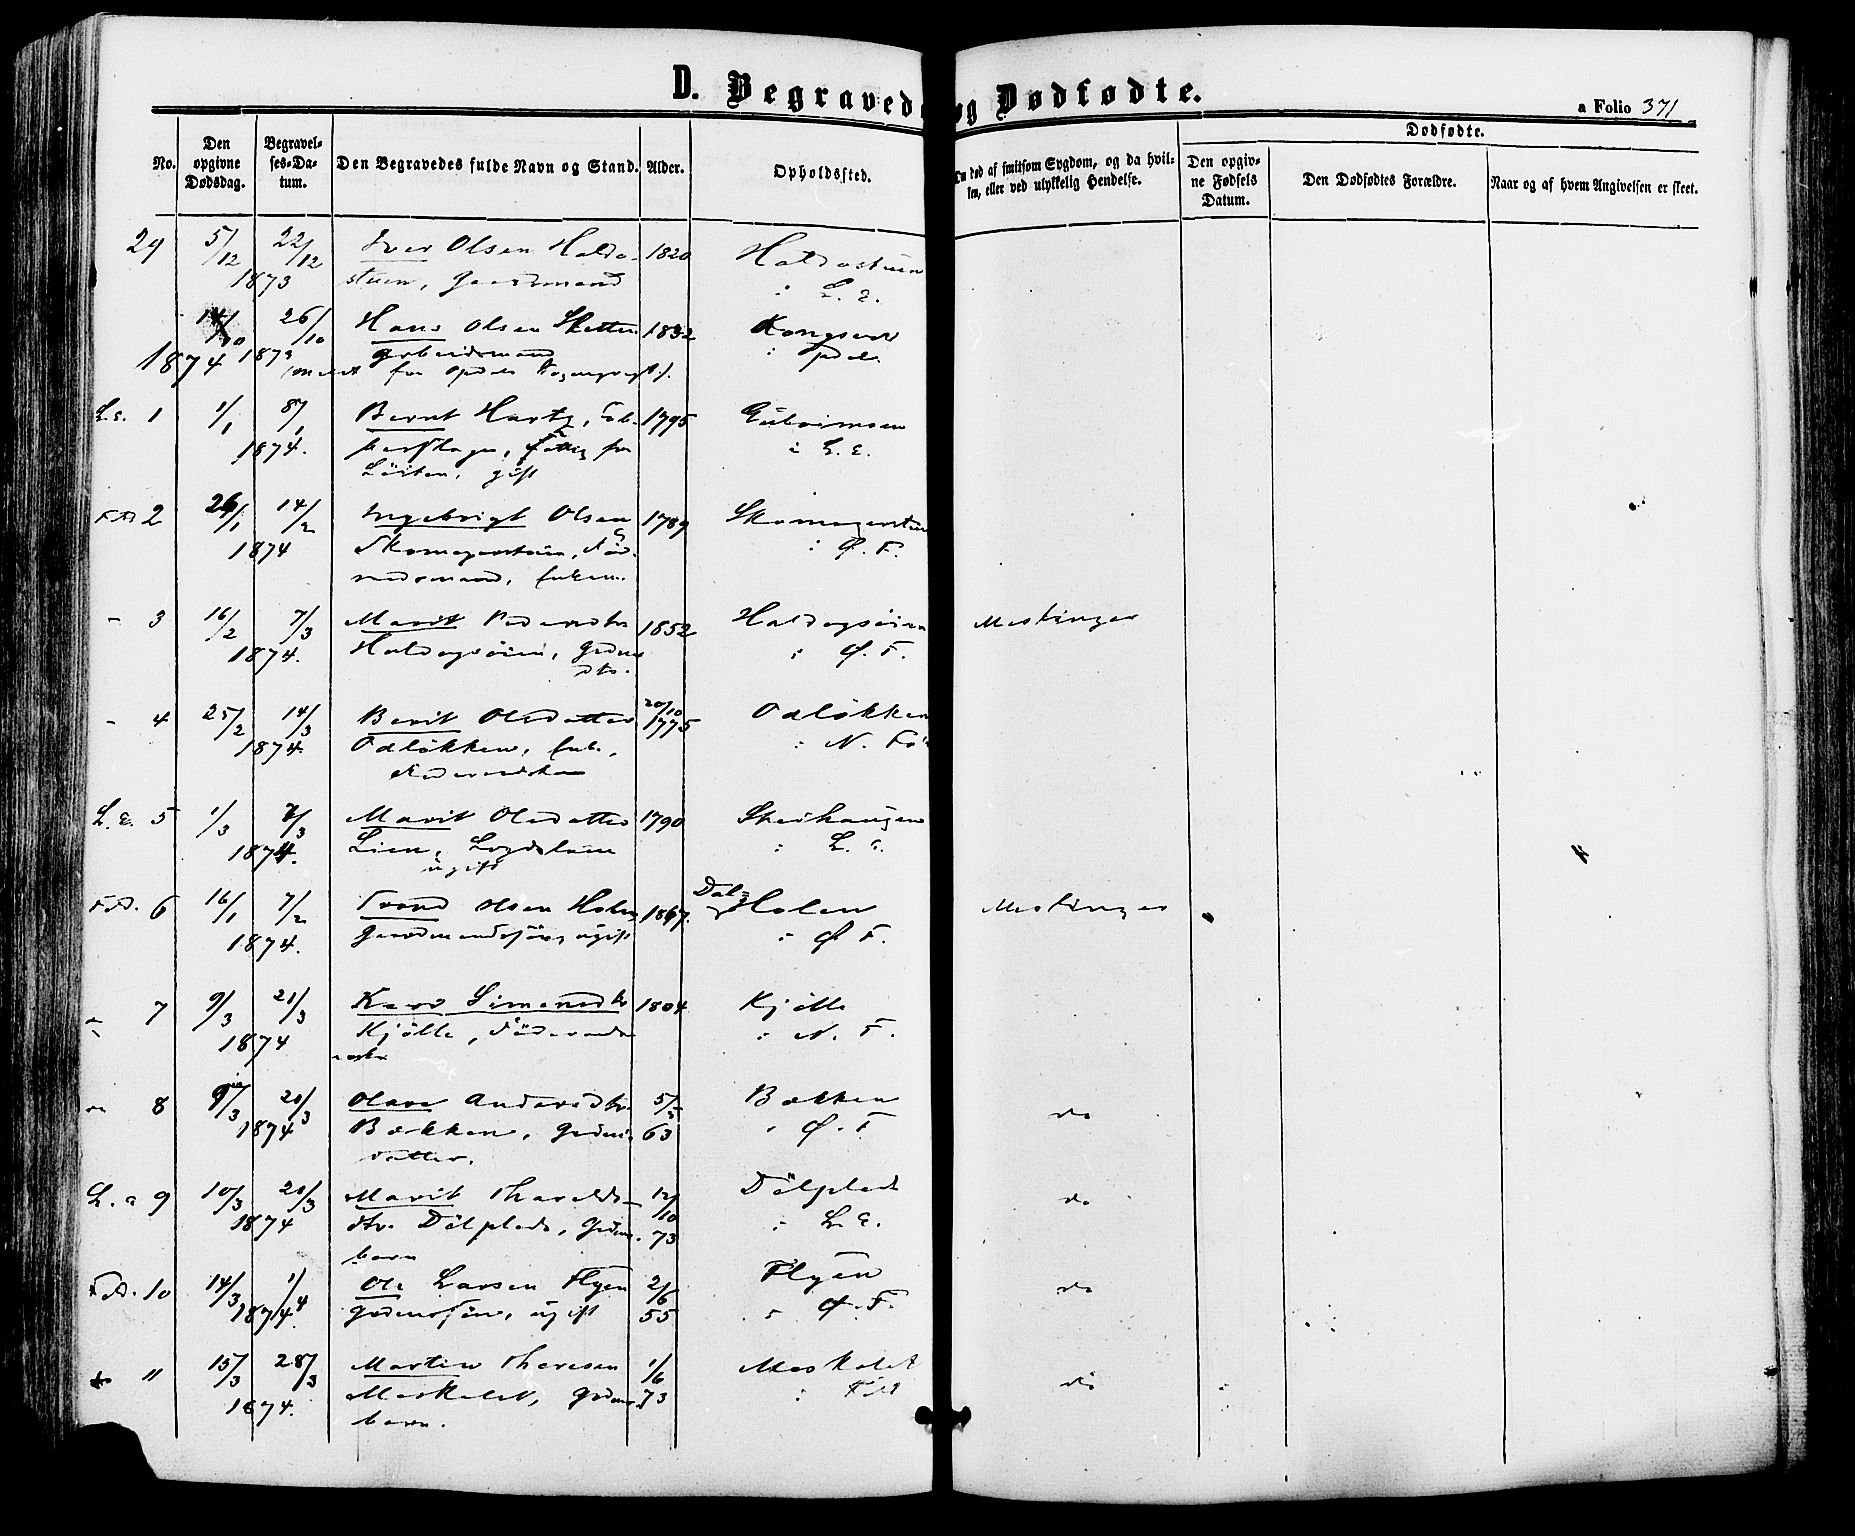 D. Begravede og Dødfødte.
a Folio 371
No.
Den opgivne Dødsdag.
Begravelses-Datum.
Den Begravedes fulde Navn og Stand.
Alder.
Opholdssted.
Om død af smitsom Sygdom, og da hvilken, eller ved ulykkelig Hendelse.
Dødfødte.
Den opgivne Fødsels Datum.
Den Dødfødtes Forældre.
Naar og af hvem Angivelsen er skeet.
29 5/12 22/12 Iver Olsen Haldo- 1820 Haldostuen
1873 stuen, Gaardmand i L. E.
/10 26/10 Hans Olsen 1832 Kongsvold
1873 Arbeidsmand i Opdal
1874
L.E. 1 1/1 8/1 Bernt Hartz, Kob- 1795
1874. berslager, fattig fra i L. E.
gift
2 26/1 14/2 Ingebrigt Olsen 1789 Skomagerstuen
1874 Skomagerstuen, Fød- i Ø. F.
raadsmand, Enkem.
- 3 16/2 7/3 Marit Pedersdtr 1852 Haldogsøien Meslinger
1874. Haldogsøien, Grdm. i Ø. F.
dtr.
- 4 25/2 14/3 Berit Olsdatter 20/10 1775 Odløkken
1874. Odløkken, Enke, i N. Fo
L. E. 5 1/3 7/3 Marit Olsdatter 1790 Skeihaugen
1874. Lien, Lægdslem i L. E.
ugift
6 16/1 7/2 Trond Olsen Holen 1867. Dal- Holen Meslinger
1874. Gaardmandssøn, ugift i Ø. F.
7 9/3 21/3 Kari Simensdtr 1804 Kjølle
1874 Kjølle, Føderaads- i N. F.
8 9/3 21/3 Olava Andersdtr. 5/5 Bækken do
1874 Bækken, Grdm. 63 i Ø. F
datter.
L. E 9 10/3 21/3 Marit Tharalds- 12/10 Dølplads do
1874 dtr. Dølplads, Grdm. 73 i L. E.
barn
10 14/3 1/4 Ole Larsen Flyen 2/6 Flyen do
1874. Grdmssøn, ugift 55 i Ø. F.
11 15/3 28/3 Martin Thoresen 1/6 Moskolet do
1874. Moskolet, Grdm. 73 i
barn.